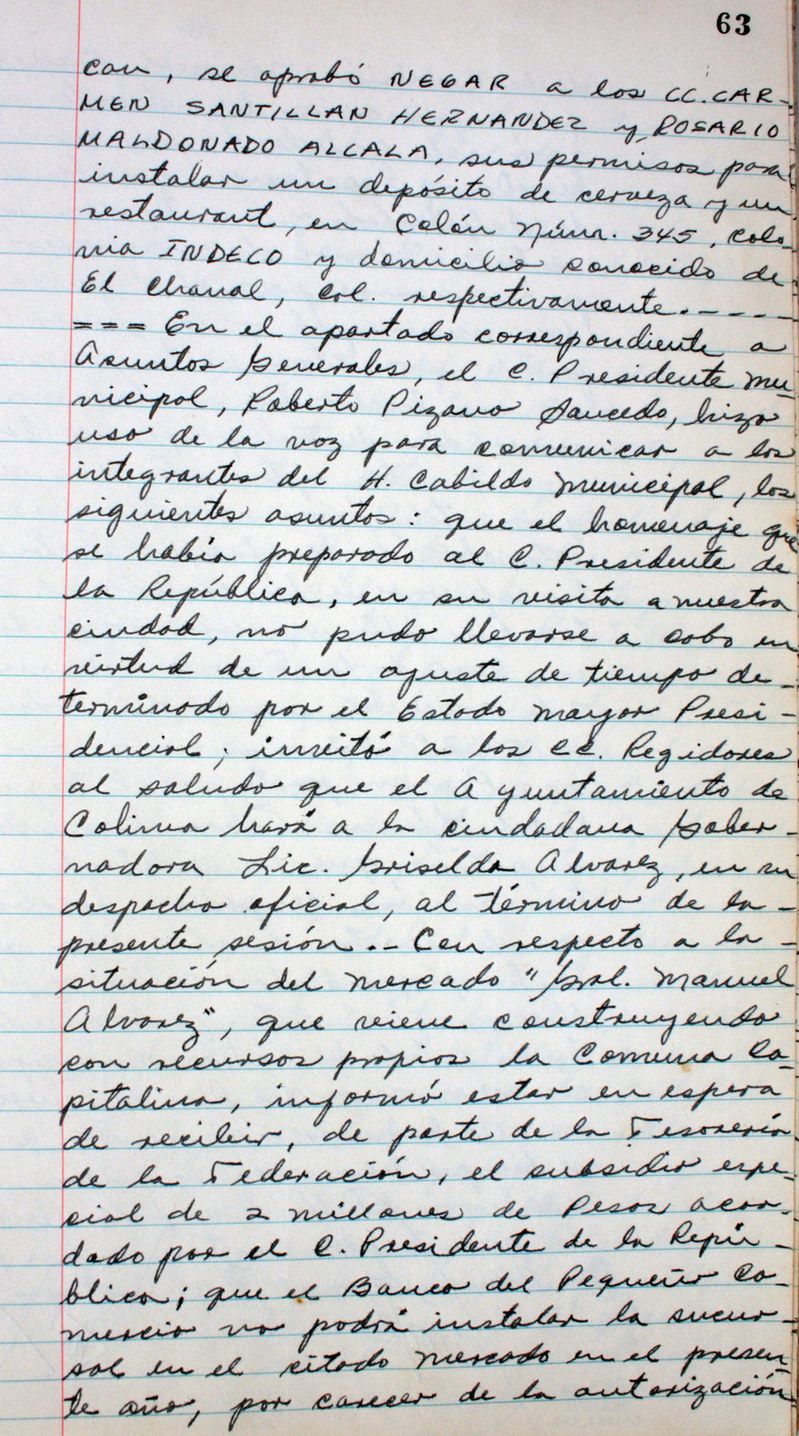 63
can, se aprobó NEGAR a los CC. CAR-
MEN SANTILLAN HERNANDEZ y ROSARIO
MALDONADO ALCALA, sus permisos para
instalar un depósito de cerveza y un
restaurant, en Colón Núm. 345, colo-
nia INDECO y domicilio conocido de
El Chanal, Col. respectivamente.----
=== En el apartado correspondiente a
Asuntos Generales, el C. Presidente Mu-
nicipal, Roberto Pizano Saucedo, hizo
uso de la voz para comunicar a los
integrantes del H. Cabildo Municipal, los
siguientes asuntos: que el homenaje que
se había preparado al C. Presidente de
la República, en su visita a nuestra
ciudad, no pudo llevarse a cabo en
virtud de un ajuste de tiempo de-
terminado por el Estado Mayor Presi-
dencial; invitó a los CC. Regidores
al saludo que el Ayuntamiento de
Colima hará a la ciudadana Gober-
nadora Lic. Griselda Alvarez, en su
despacho oficial, al término de la -
presente sesión.- Con respecto a la -
situación del mercado "Gral. Manuel
Alvarez", que viene construyendo
con recursos propios la Comuna Ca-
pitalina, informó estar en espera
de recibir, de parte de la Tesorería
de la Federación, el subsidio espe-
cial de 2 millones de Pesos acor-
dado por el C. Presidente de la Repú-
blica; que el Banco del Pequeño Co-
mercio no podrá instalar la sucur-
sal en el citado mercado en el presen-
te año, por carecer de la autorización